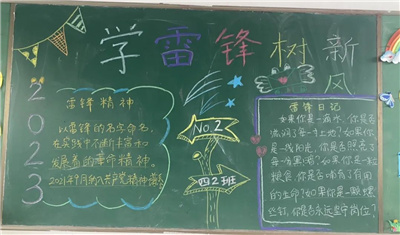 学雷锋树新风
2023
雷锋精神
以雷锋的名字命名,
在实践中不断丰富和
发展着的革命精神。
2021年9月纳入共产党精神谱系
No.2
四2班
雷锋日记
如果你是一滴水,你是否
滋润了每一寸土地?如果你
是一线阳光,你是否照亮了
每一份黑暗?如果你是一粒
粮食,你是否哺育了有用
的生命?如果你是一颗螺
丝钉,你是否永远坚守岗位?